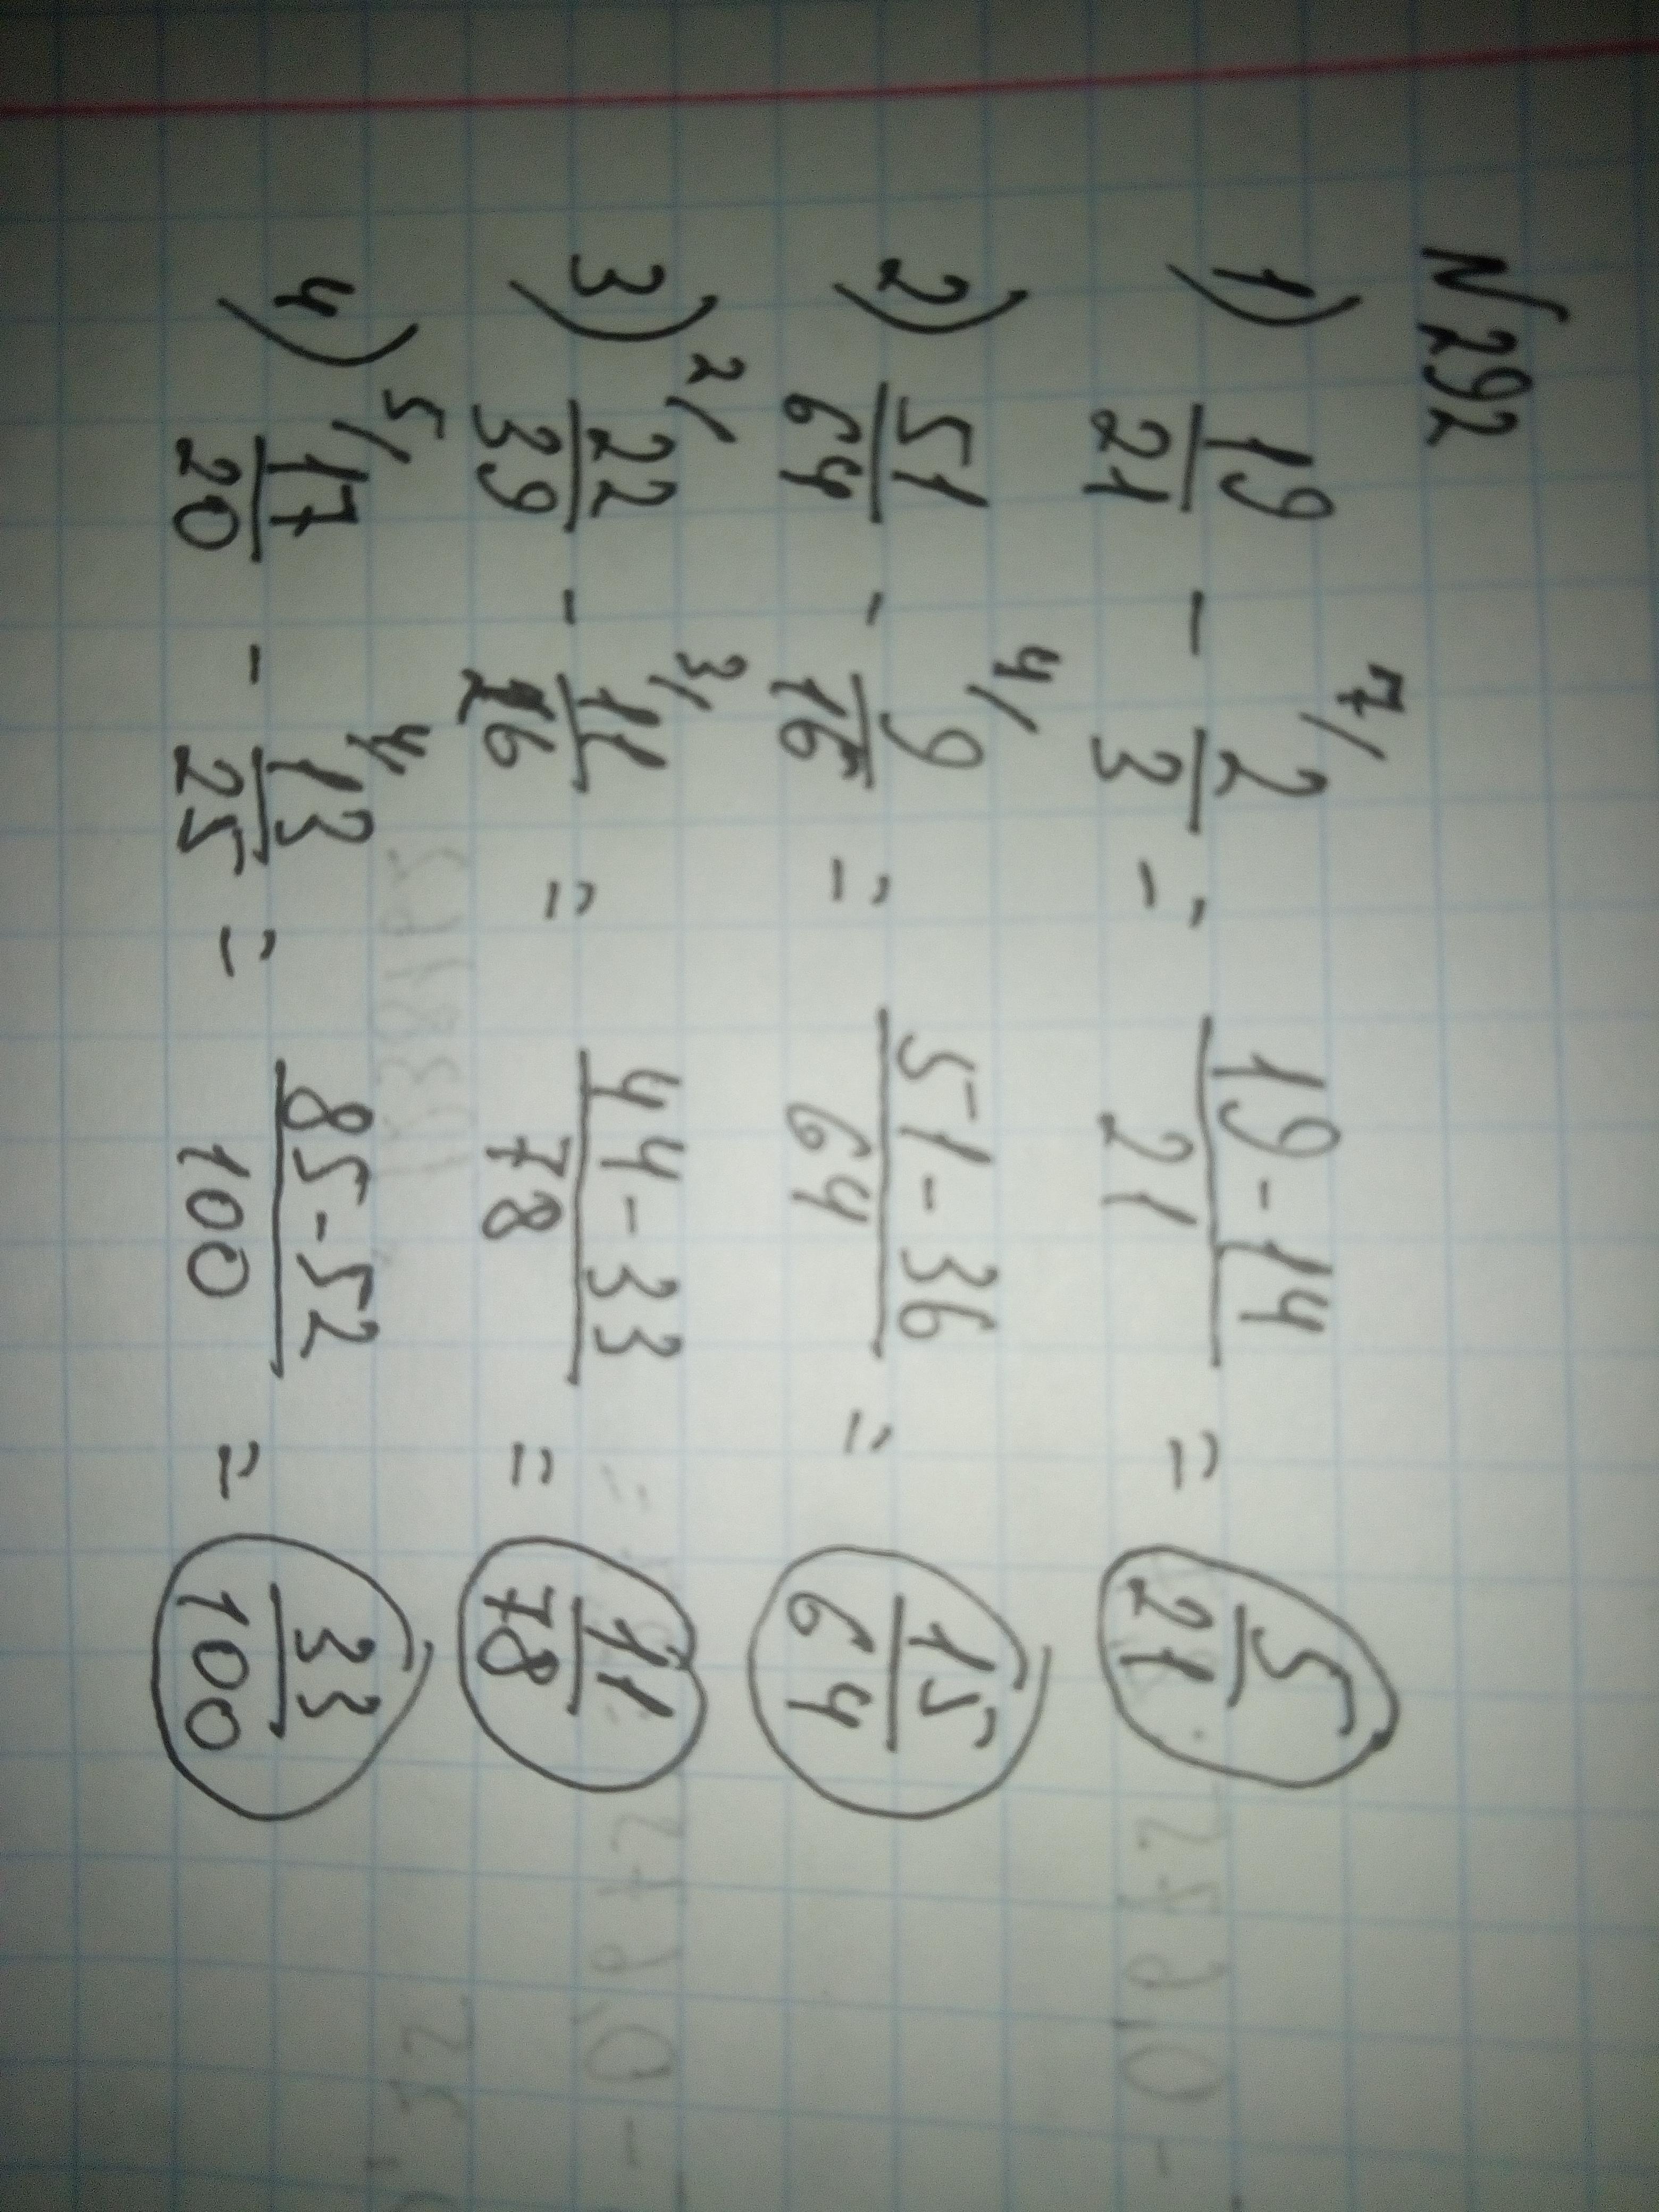 N292
1) 19/21 - 7/ 2/3 = (19-14)/21 = 5/21
2) 51/64 - 4/ 9/16 = (51-36)/64 = 15/64
3) 2/ 22/39 - 3/ 11/26 = (44-33)/78 = 11/78
4) 5/ 17/20 - 4/ 13/25 = (85-52)/100 = 33/100